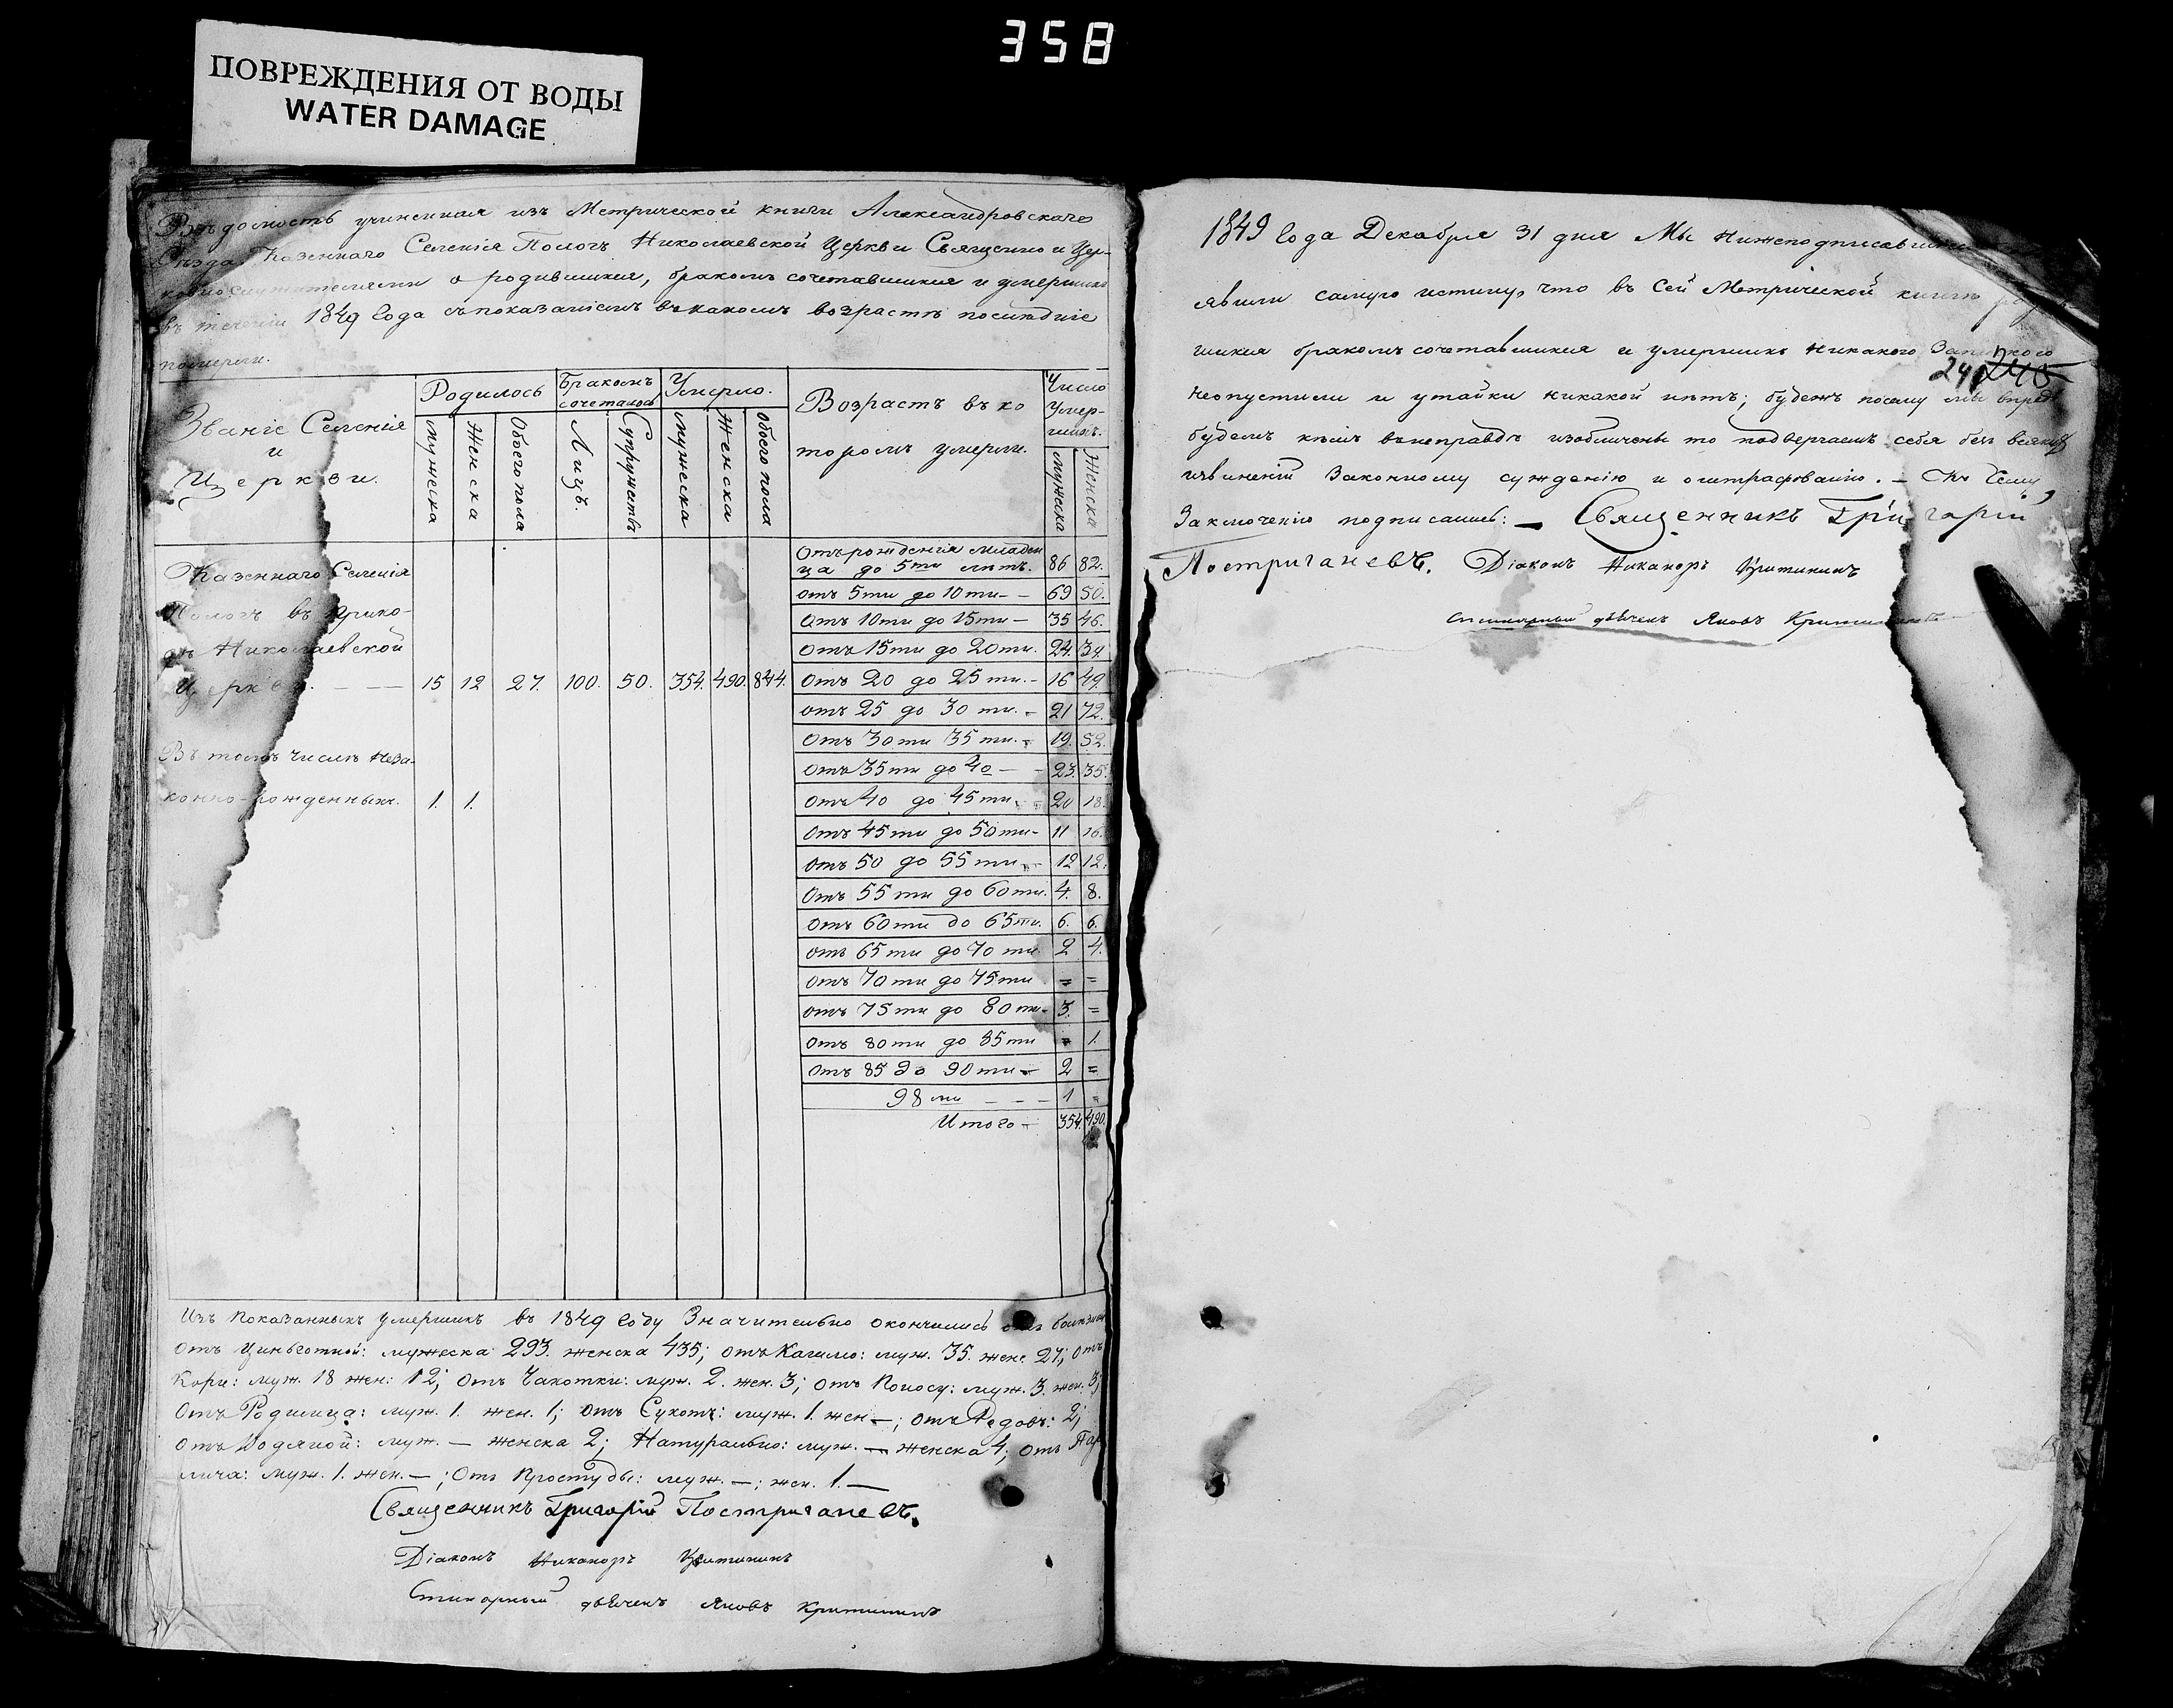 358
ПОВРЕЖДЕНИЯ ОТ ВОДЫ
WATER DAMAGE
Вѣдомость учиненная изъ Метрической книги Александровскаго
Уѣзда Казеннаго Селенія Пологъ Николаевской Церкви Священно и Цер-
ковнослужителями о родившихся, бракомъ сочетавшихся и умершихъ
въ теченіи 1849 Года съ показаніемъ въ какомъ возрастѣ послѣдніе
померли.
Званіе Селенія
и
Церкви.
Родилось
Мужеска
Женска
Обоего пола
Бракомъ
сочеталось
Лицъ.
Супружествъ
Умерло.
Мужеска
Женска
Обоего пола
Возрастъ въ ко
торомъ умерли.
Число
Умер-
шихъ.
Мужеска
Женска
Казеннаго Селенія
Пологъ въ прихо-
дѣ Николаевской
Церкви. — — 15 12 27. 100. 50. 354. 490. 844.
Въ томъ числѣ неза-
конно-рожденныхъ. 1. 1.
Отъ рожденія младен
ца до 5ти лѣтъ. 86 82.
отъ 5ти до 10ти — 69 50.
Отъ 10ти до 15ти — 35 46.
Отъ 15ти до 20ти. 24. 39.
Отъ 20 до 25ти. - 16 49.
отъ 25 до 30ти. - 21 72.
Отъ 30ти 35ти. - 19. 52.
Отъ 35ти до 40 — 23. 35.
Отъ 40 до 45ти. 20 18.
Отъ 45ти до 50ти - 11 16.
Отъ 50 до 55ти. - 12 12.
Отъ 55ти до 60ти. 4. 8.
Отъ 60ти до 65ти. 6. 6.
отъ 65ти до 70ти. 2 4.
отъ 70ти до 75ти = =
отъ 75ти до 80ти - 3. =
отъ 80ти до 85ти = 1.
Отъ 85 до 90ти - 2 =
98ми - - - 1 =
Итого - 354. 490.
Изъ показанныхъ умершихъ въ 1849 Году Значительно окончились отъ болѣзни
Отъ Цынготной: мужеска 293. женска 435; отъ Кашлю: муж. 35. женс. 27; отъ
Кори: муж. 18 жен: 12; отъ Чахотки: муж. 2. жен. 3; отъ Поносу: муж. 3. жен. 3;
Отъ Родимца: муж. 1. жен. 1; отъ Сухотъ: муж. 1. жен —; отъ Родовъ: 2;
Отъ Водяной: муж. — женска 2; Натурально: муж. — женска 4; отъ Пар
лича: муж. 1. жен. —; Отъ Простуды: муж. —; жен. 1. —
Священникъ Григорій Постригачевъ.
Діаконъ Никаноръ
Стихарный дьячекъ Яковъ
1849 Года Декабря 31 дня Мы нижеподписавшіеся
явили самую истину, что въ сей Метрической книгѣ
шихся бракомъ сочетавшихся и умершихъ никакого
241 245
не опустили и утайки никакой нѣтъ; будежъ посему мы впредь
будемъ кѣмъ въ неправдѣ изобличены то подвергаемъ себя безъ всякихъ
извиненій Законному сужденію и оштрафованію. — Къ сему
Заключенію подписались: — Священникъ Григорій
Постригачевъ. Діаконъ Никаноръ
Стихарный дьячекъ Яковъ